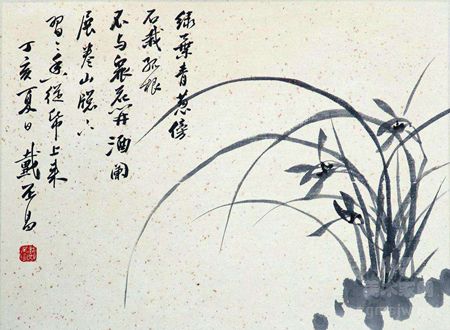 綠葉青葱傍
石栽孤根
不与衆花开酒闌
展卷山牕下
習〻香從紙上来
丁亥夏日 戴昌